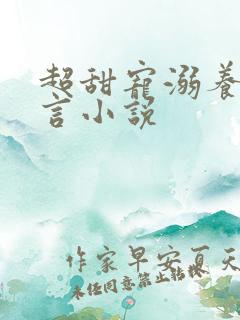 超甜寵溺養
言小説
作家早安夏天
未经同意禁止转载